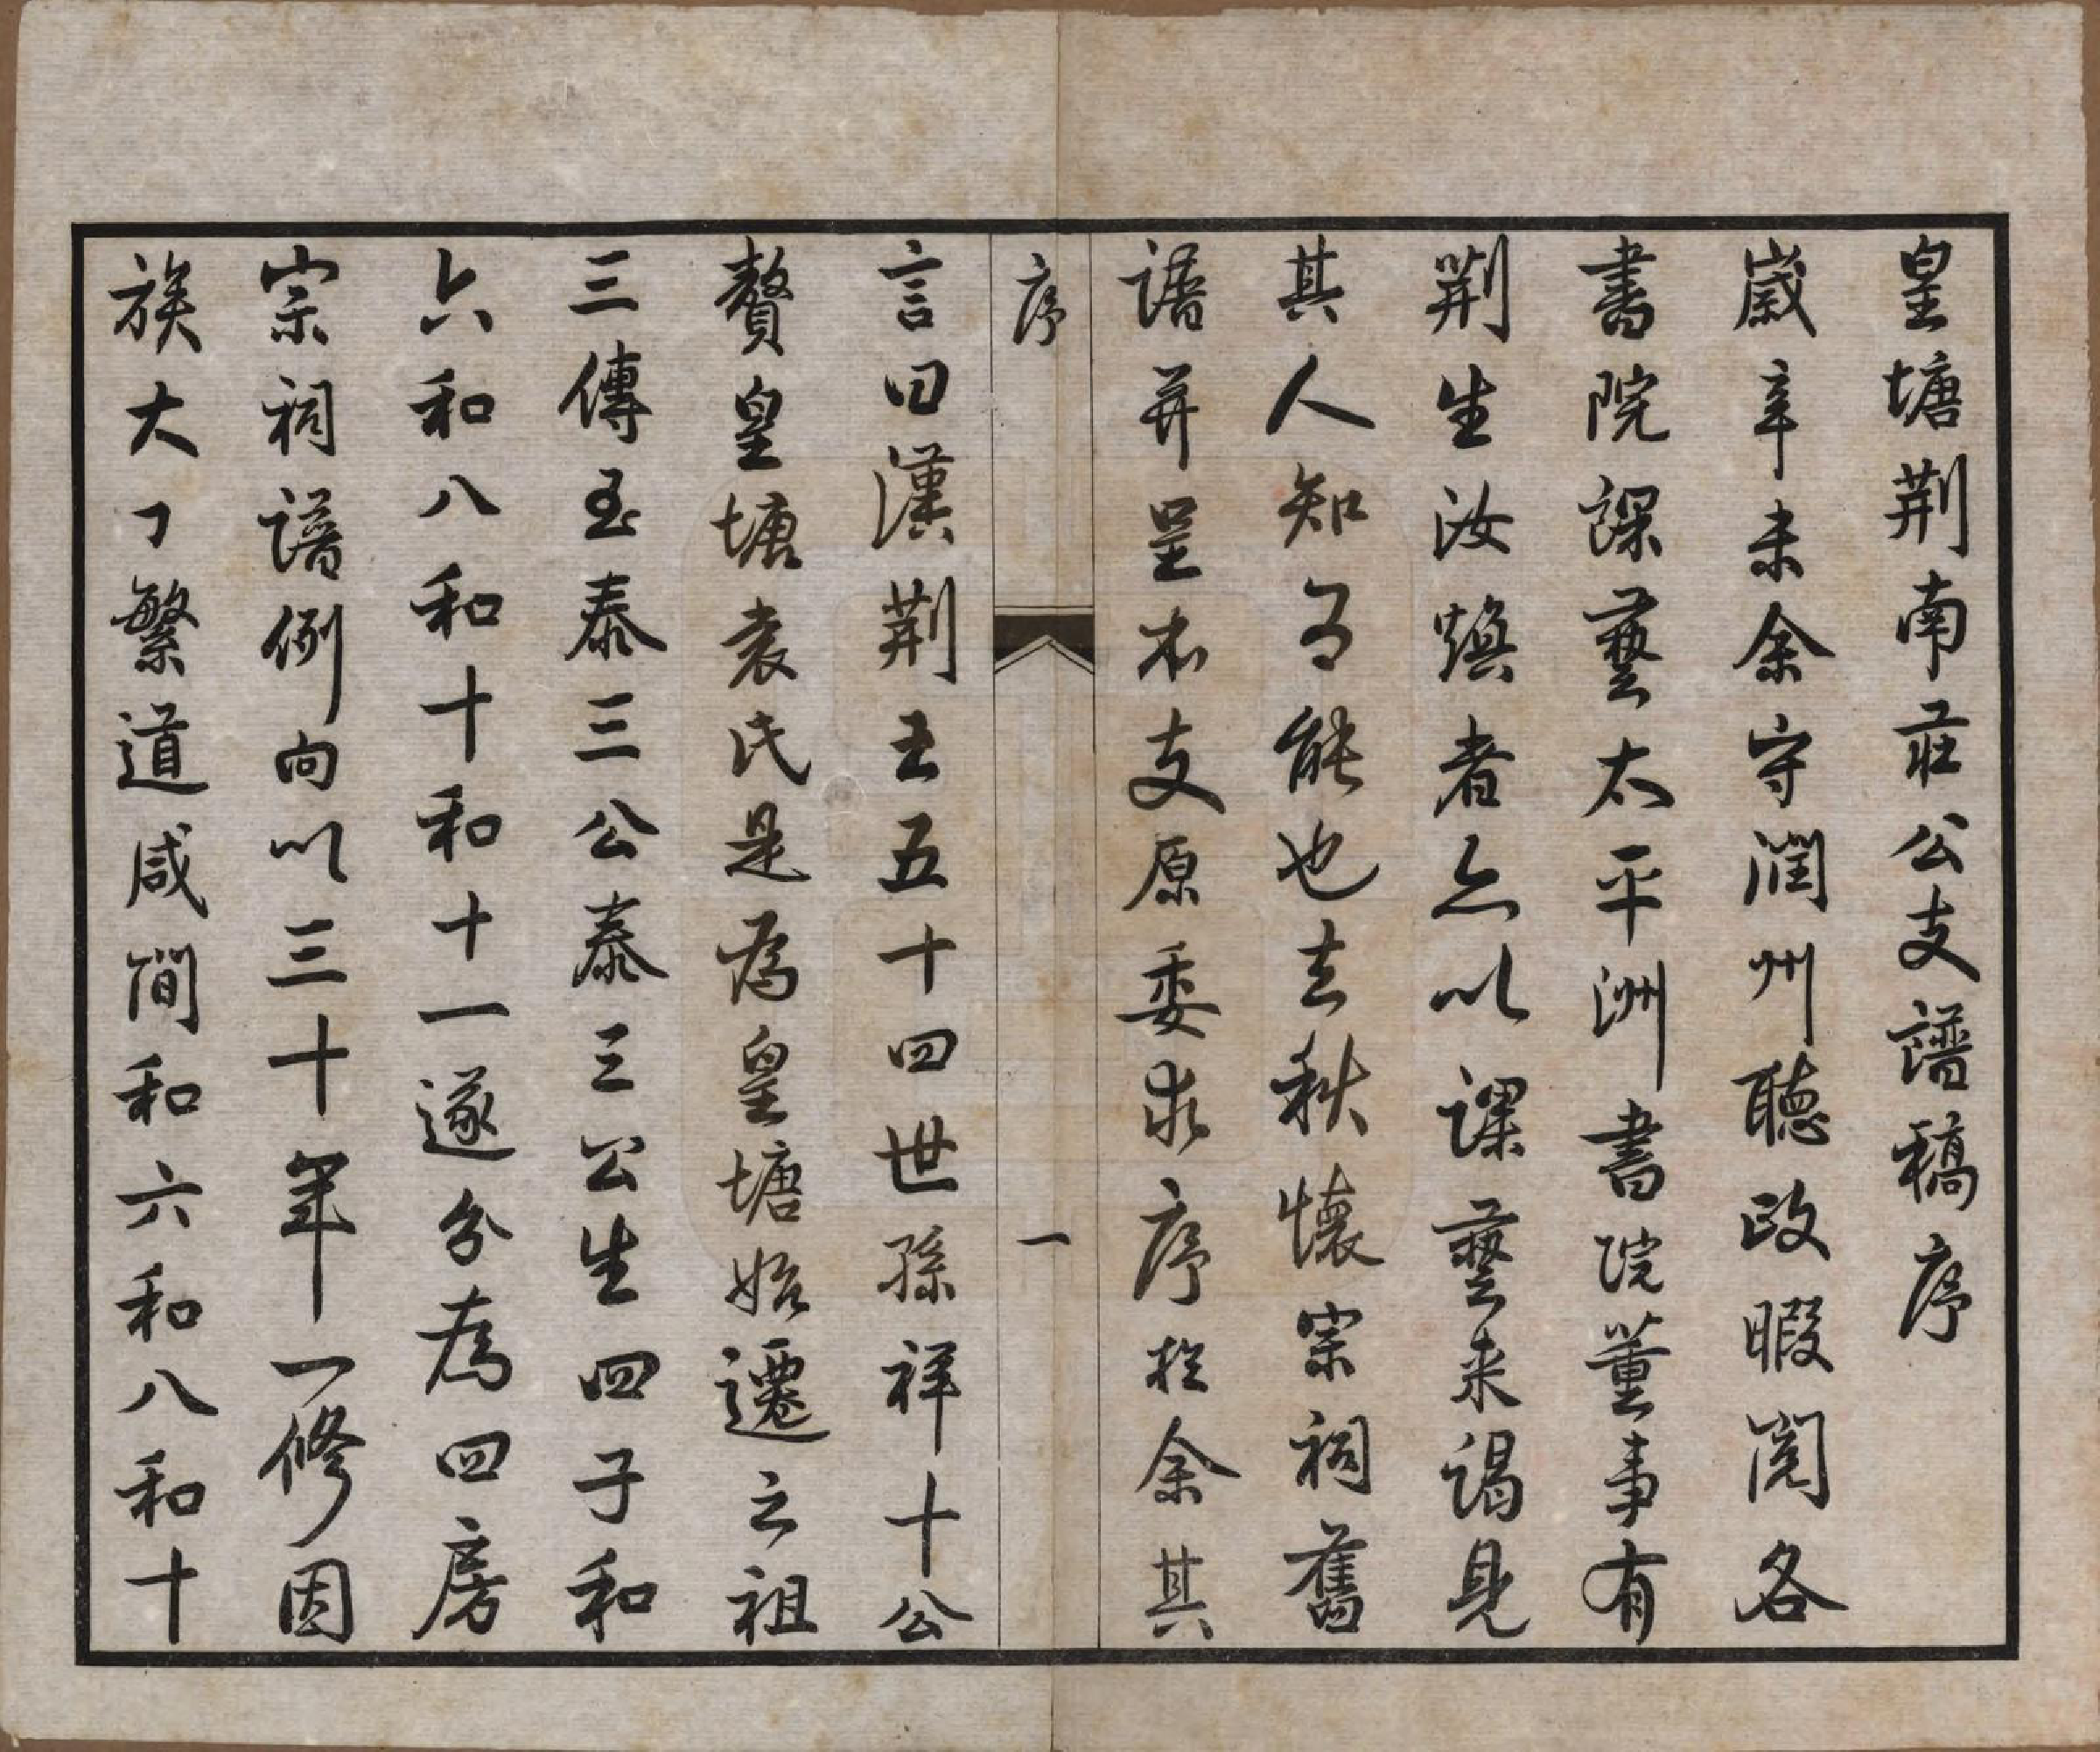 皇塘荆南莊公支譜稿序
歲辛未余守潤州聽政暇閱各
書院課藝太平洲書院董事有
荆生汝煥者亦以課藝来謁見
其人知為能也去秋懷宗祠舊
譜并呈本支原委求序於余其
序
一
言曰漢荆王五十四世孫祥十公
贅皇塘袁氏是為皇塘始遷之祖
三傳至泰三公泰三公生四子和
六和八和十和十一遂分為四房
宗祠譜例向以三十年一修因
族大丁繁道咸間和六和八和十